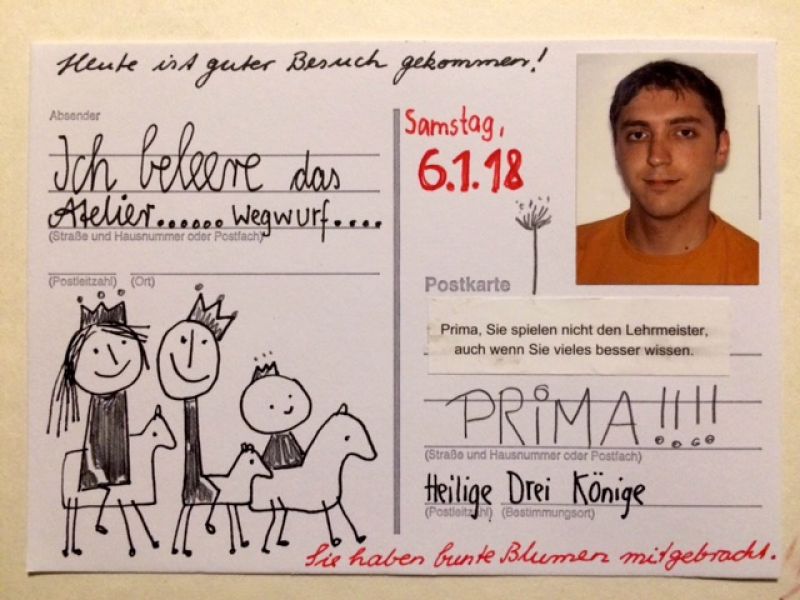 Heute ist guter Besuch gekommen!
Absender
Ich beleere das
Atelier...... Wegwurf....
(Straße und Hausnummer oder Postfach)
(Postleitzahl) (Ort)
Samstag,
6.1.18
Postkarte
Prima, Sie spielen nicht den Lehrmeister,
auch wenn Sie vieles besser wissen.
PRiMA!!!!
(Straße und Hausnummer oder Postfach)
Heilige Drei Könige
(Postleitzahl) (Bestimmungsort)
Sie haben bunte Blumen mitgebracht.